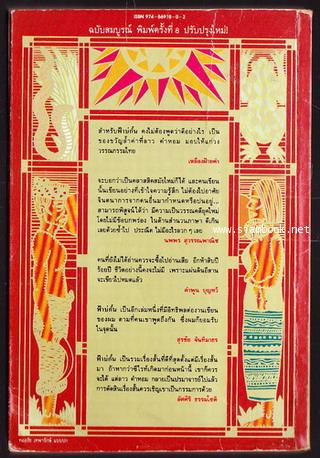 ISBN 974-86918-8-2
ฉบับสมบูรณ์ พิมพ์ครั้งที่ 8 ปรับปรุงใหม่!
สำหรับฟ้าบ่กั้น คงไม่ต้องพูดว่าดีอย่างไร เป็น
ของขวัญล้ำค่าที่ลาว คำหอม มอบให้แก่วง
วรรณกรรมไทย
เหลืองฝ้ายคำ
จะบอกว่าเป็นคลาสสิคสมัยใหม่ก็ได้ และคนเขียน
นั้นเขียนอย่างที่เข้าใจความรู้สึก ไม่ต้องไปอาศัย
จินตนาการจากคนอื่นมากำหนดหรือปนอยู่...
สามารถพิสูจน์ได้ว่า มีความเป็นวรรณคดียุคใหม่
โดยไม่มีข้อบกพร่อง ในด้านสำนวนภาษา ดีเกิน
เลยด้วยซ้ำไป ประณีต ไม่มีอะไรลวก ๆ เลย
นพพร สุวรรณพานิช
คนที่ยังไม่ได้อ่านควรจะซื้อไปอ่านเสีย อีกห้าสิบปี
ร้อยปี ชีวิตอย่างนี้คงจะไม่มี เพราะแผ่นดินอีสาน
จะเขียวไปหมดแล้ว
คำพูน บุญทวี
ฟ้าบ่กั้น เป็นอีกเล่มหนึ่งที่มีอิทธิพลต่องานเขียน
ของผม ตามที่คนเขาพูดถึงกัน ซึ่งผมก็ยอมรับ
ในจุดนั้น
สุรชัย จันทิมาธร
ฟ้าบ่กั้น เป็นรวมเรื่องสั้นที่ดีที่สุดตั้งแต่มีเรื่องสั้น
มา ถ้าหากว่าซีไรท์เกิดมาก่อนหน้านี้ เขาก็ควร
จะได้ แต่ลาว คำหอม กลายเป็นปรมาจารย์ไปแล้ว
การตัดสินเรื่องสั้นควรเชิญเขาเป็นกรรมการด้วย
อัศศิริ ธรรมโชติ